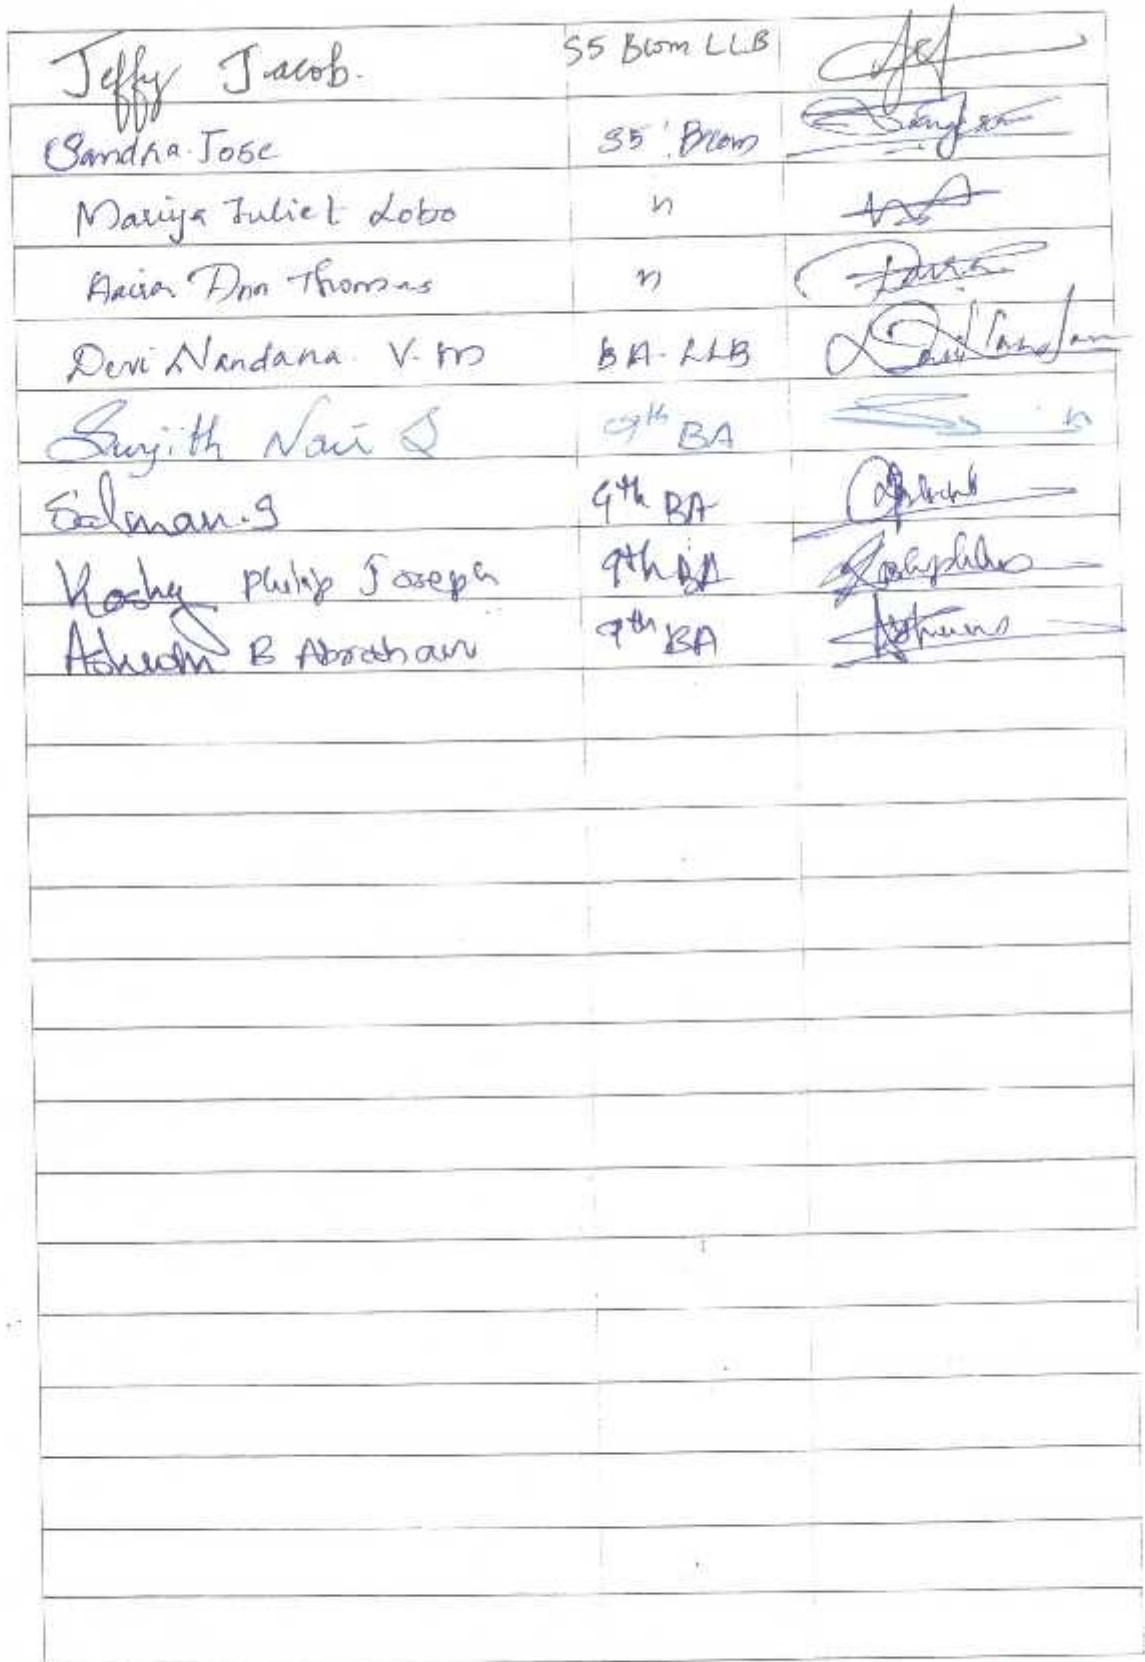 Jeffy Jacob. S5 Bcom LLB Jef
Sandra Jose S5 Bcom
Mariya Juliet Lobo "
Ann Thomas "
Devi Nandana V.M BA-LLB Devi Nandan
Surjith Nair S 9th BA
Salman.S 9th BA
Koshy Philip Joseph 9th BA
B Abraham 9th BA